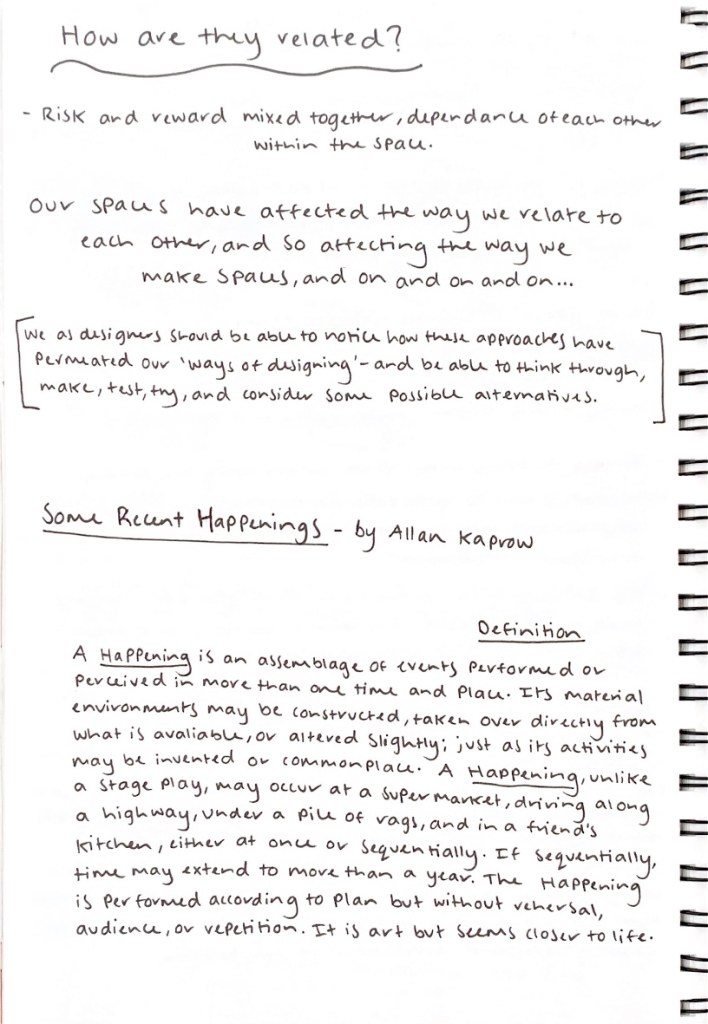 How are they related?
- Risk and reward mixed together, dependance of each other
within the space.
Our spaces have affected the way we relate to
each other, and so affecting the way we
make spaces, and on and on and on...
[We as designers should be able to notice how these approaches have
permeated our 'ways of designing' - and be able to think through,
make, test, try, and consider some possible alternatives.]
Some Recent Happenings - by Allan Kaprow
Definition
A Happening is an assemblage of events performed or
perceived in more than one time and place. Its material
environments may be constructed, taken over directly from
what is avaliable, or altered slightly; just as its activities
may be invented or commonplace. A Happening, unlike
a stage play, may occur at a supermarket, driving along
a highway, under a pile of rags, and in a friend's
kitchen, either at once or sequentially. If sequentially,
time may extend to more than a year. The Happening
is performed according to plan but without rehersal,
audience, or repetition. It is art but seems closer to life.